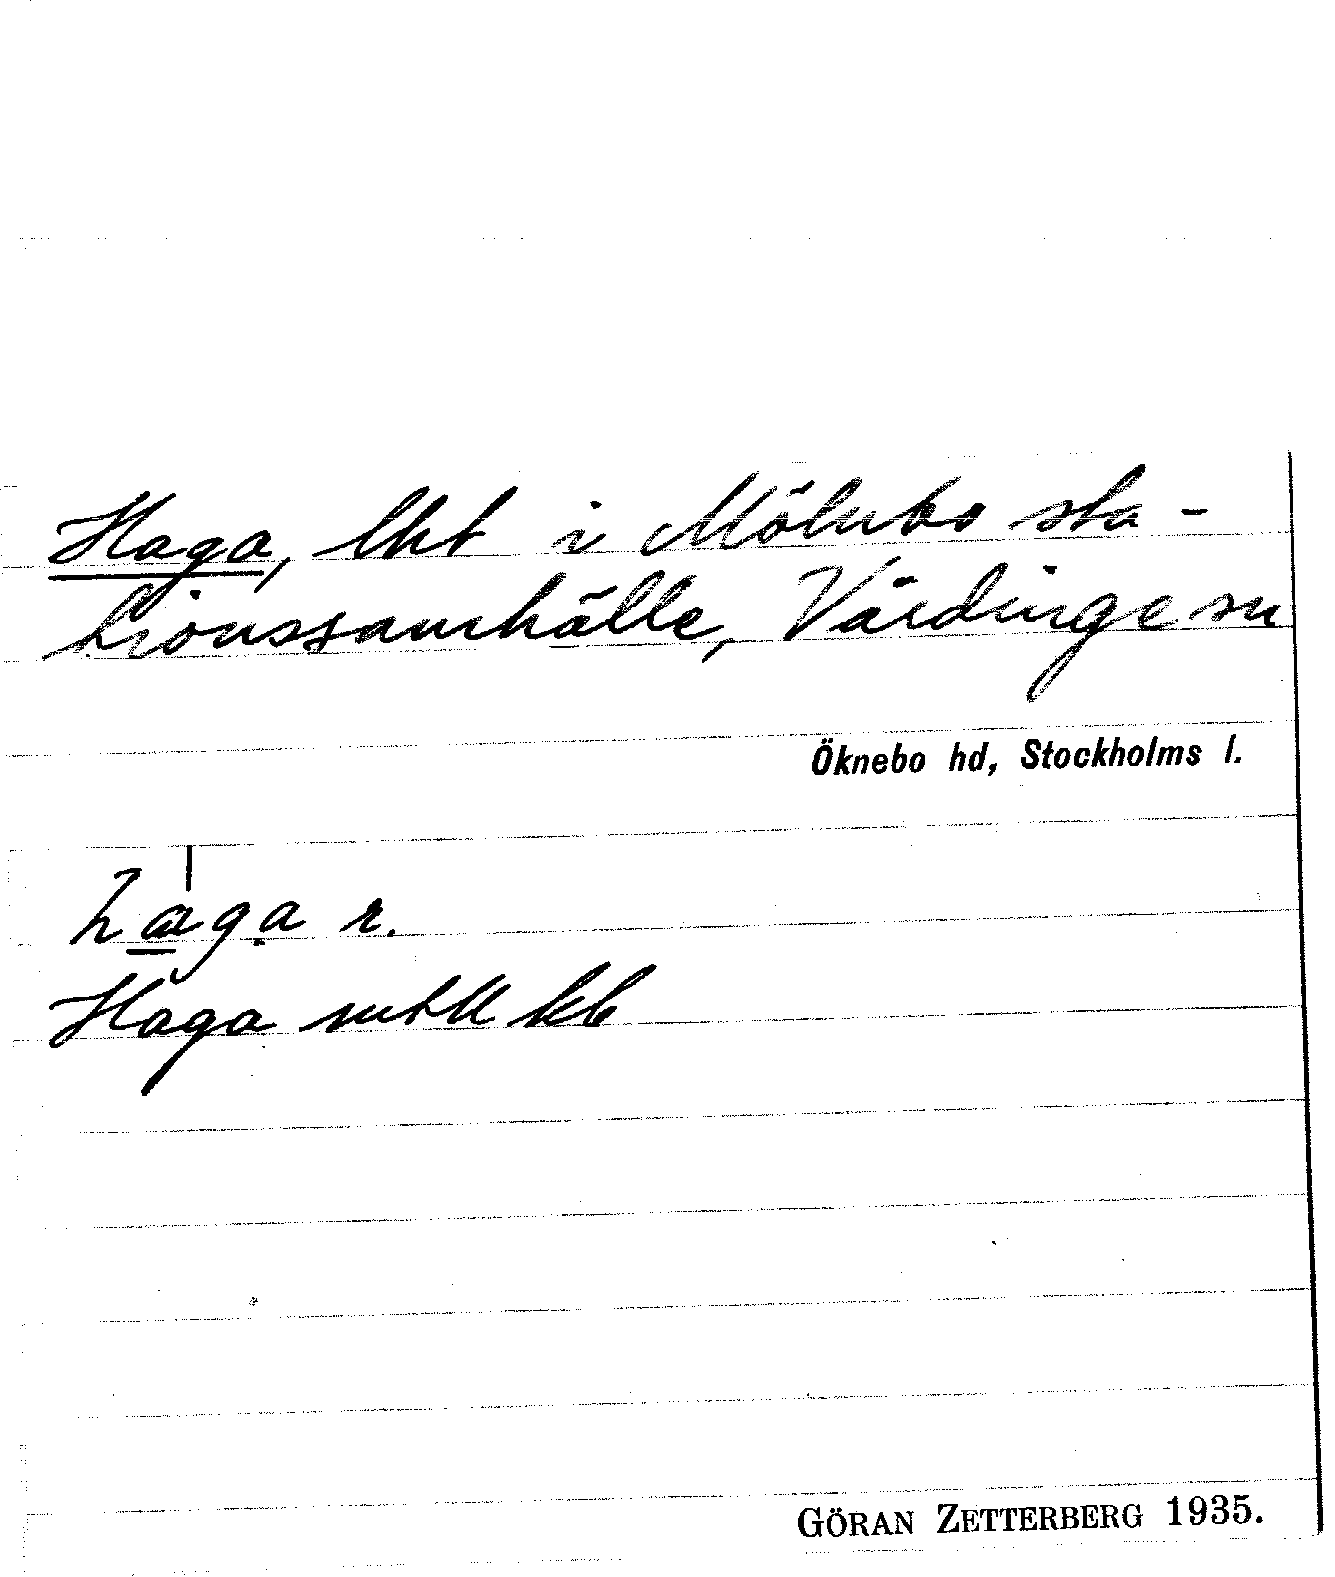 Haga, lht i Mölnbo sta-
tionssamhälle, Vårdinge sn
Öknebo hd, Stockholms l.
hɑga r.
Haga mtll kb
GÖRAN ZETTERBERG 1935.